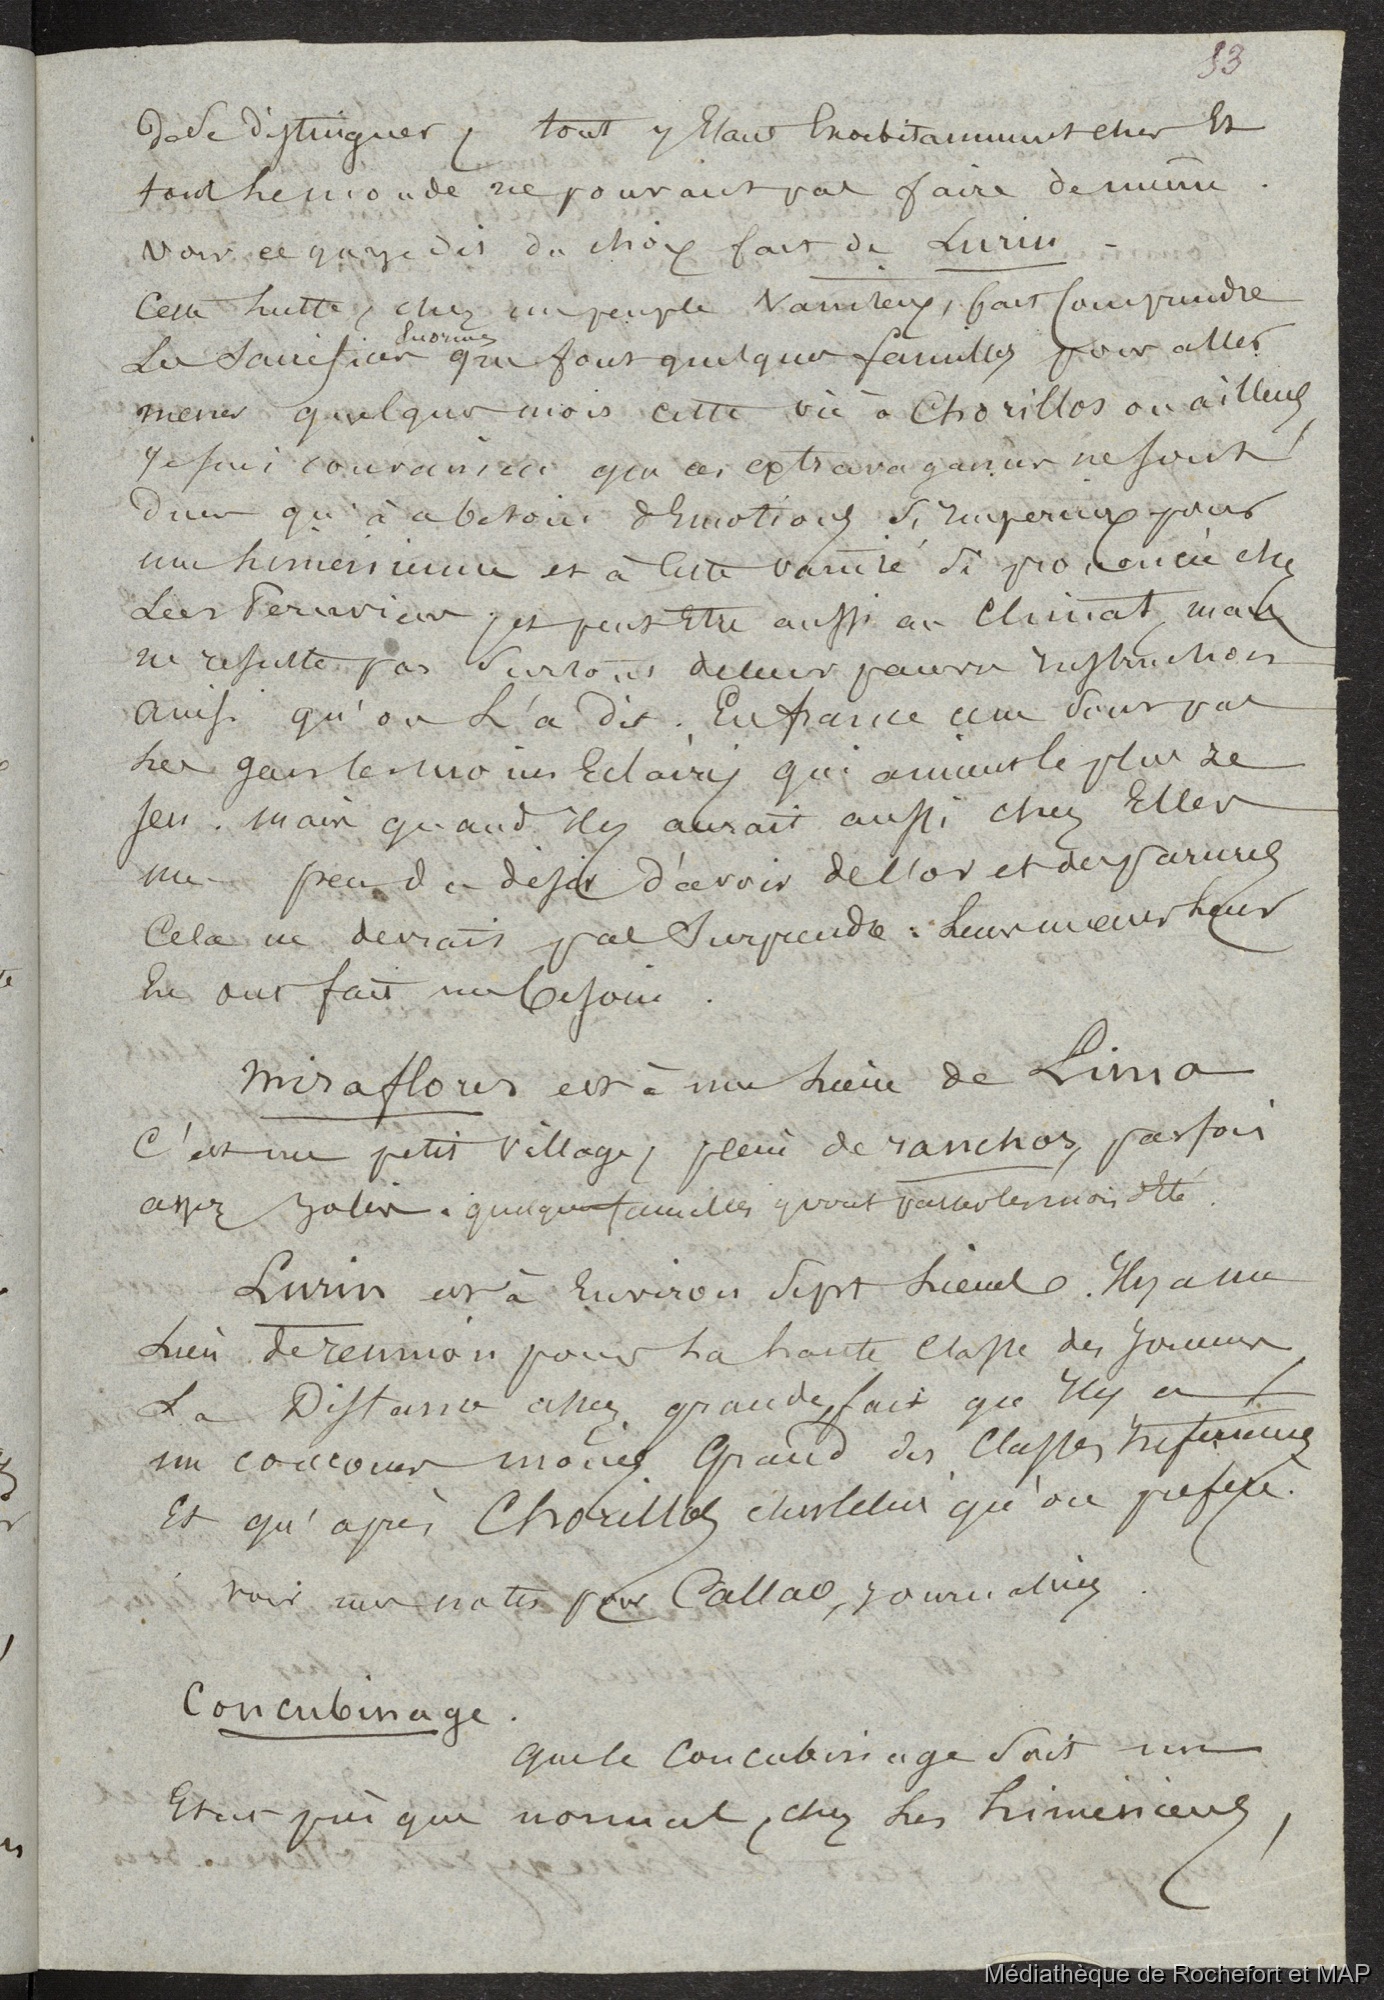 53
de se distinguer, tout y étant exorbitamment cher Et
tout le monde ne pouvant pas faire de même.
voir ce que je dis du choix fait de Lurin -
Cette lutte, chez un peuple vaniteux, fait comprendre
Enormes
Les sacrifices que font quelques familles pour aller
mener quelques mois cette vie à Chorillos ou ailleurs,
je suis convaincu que ces extravagances ne sont
dues qu'à ce besoin d'Emotions si impérieux pour
une liménienne et à cette vanité si prononcée chez
Les Péruviens, et peut Etre aussi au Climat, mais
ne résulte pas surtout de leur pauvre instruction
ainsi qu'on L'a dit. En france ce ne sont pas
les gens les moins Eclairés qui aiment le plus le
jeu. mais quand il y aurait aussi chez Elles
un peu de désir d'avoir de l'or et des parures
Cela ne devrait pas surprendre: leurs mœurs leur
En ont fait un besoin.
Miraflores est à une lieue de Lima
C'est un petit village, plein de ranchos, parfois
assez jolis. quelques familles y vont passer les mois d'Eté.
Lurin est à Environ sept lieues. Il y a un
lieu de réunion pour la haute Classe des joueurs
La Distance assez grande, fait que il y a
un concours moins grand des Classes inférieures
Et qu'après Chorillos c'est celui qu'on préfère.
voir mes notes pour Callao, journalier.
Concubinage.
que le concubinage soit un
Etat presque normal, chez les Liméniens,
Médiathèque de Rochefort et MAP